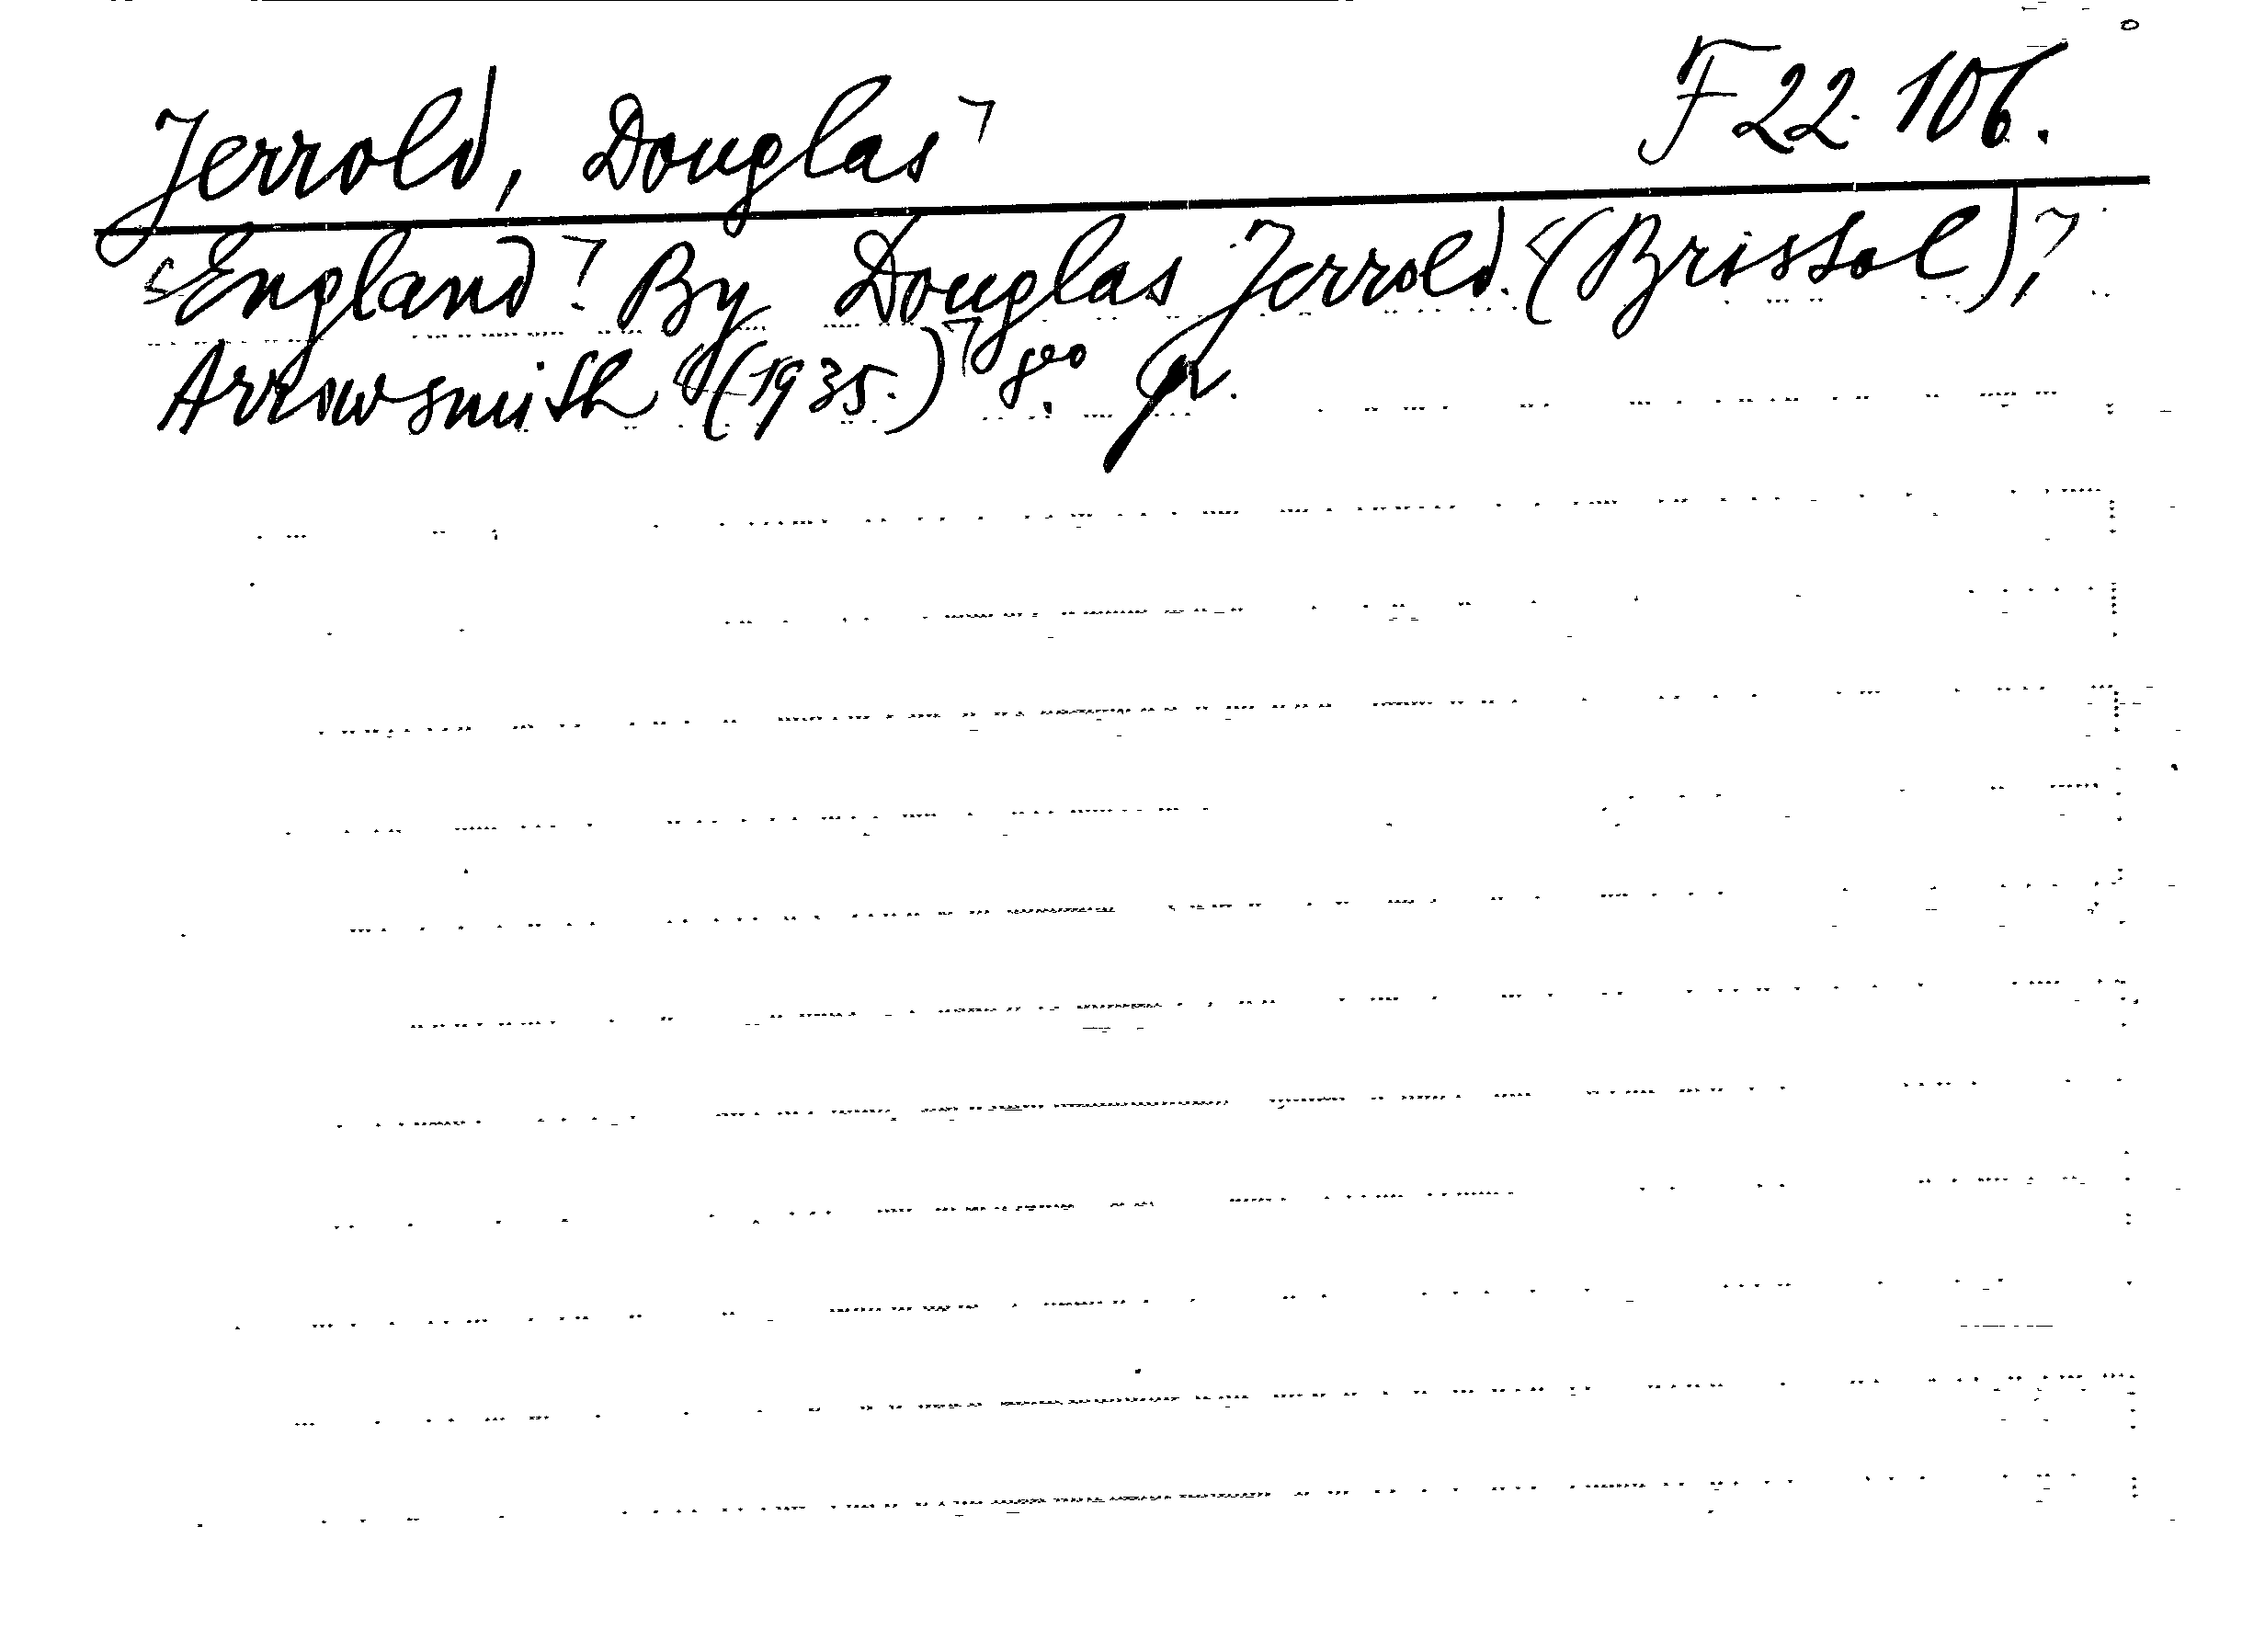 Jerrold, Douglas⁊ F 22. 106.
England⁊. By Douglas Jerrold. (Bristol)⁊,
Arrowsmith (1935.)⁊ 8vo. gr.